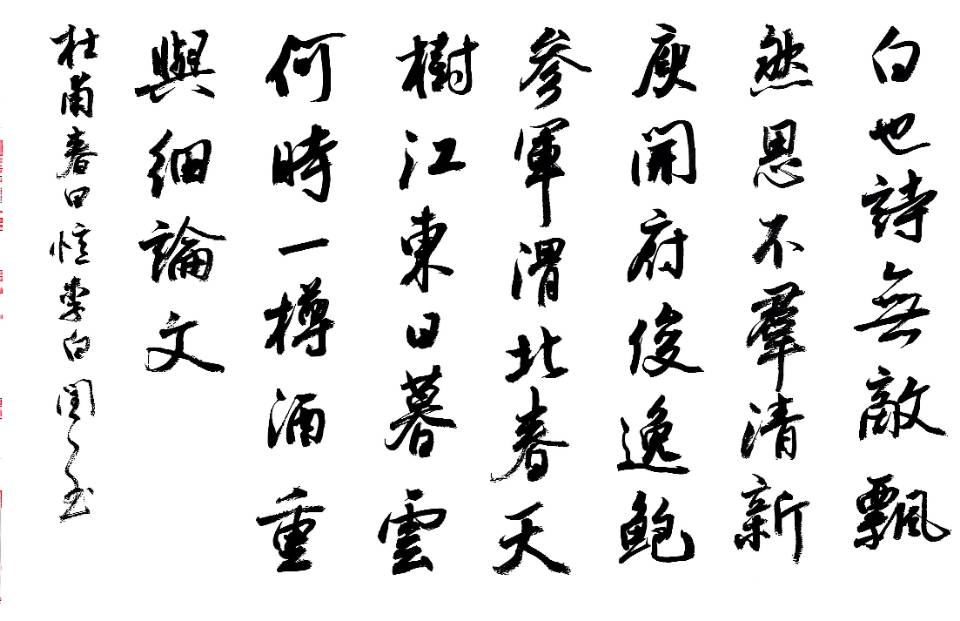 白也詩無敵飄
然思不羣清新
庾開府俊逸鮑
參軍渭北春天
樹江東日暮雲
何時一樽酒重
與細論文
杜甫春日憶李白